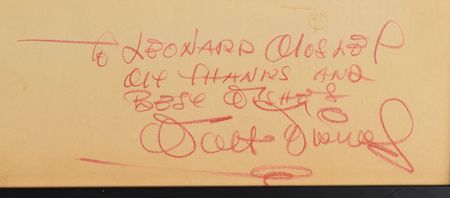 To LEONARD MOSLEY
MY THANKS AND
BEST WISHES
Walt Disney